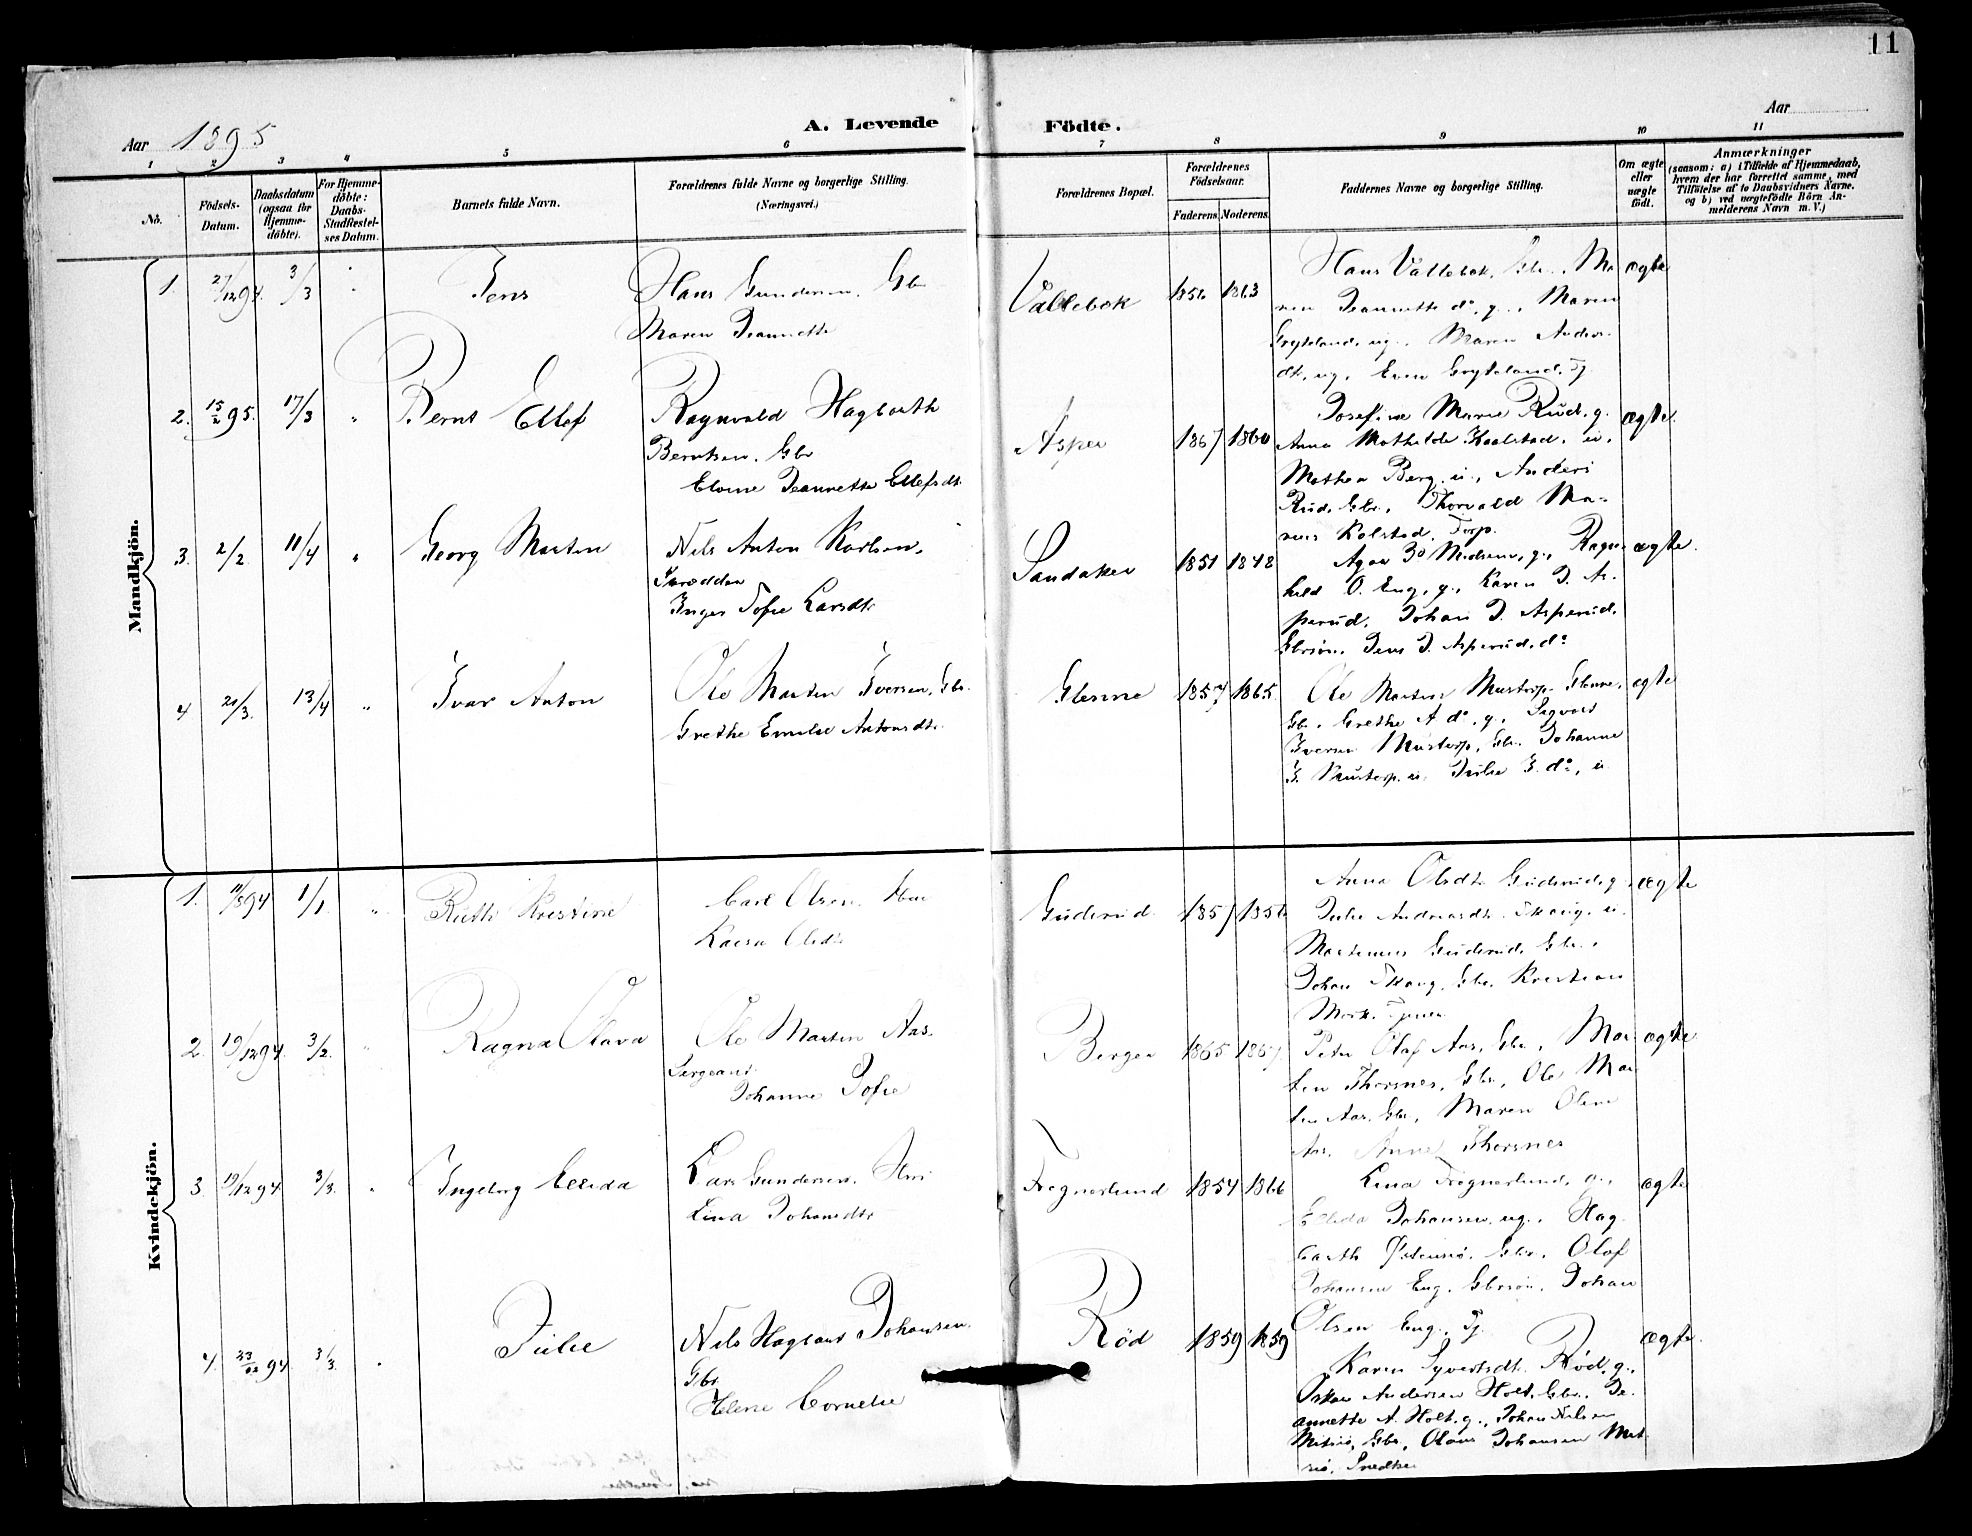 11
Aar 1895
A. Levende Födte.
Aar
1 2 3 4 5 6 7 8 9 10 11
No.
Födsels-Datum.
Daabsdatum (ogsaa for Hjemme-döbte).
For Hjemme-döbte: Daabs-Stadfæstel-ses Datum.
Barnets fulde Navn.
Forældrenes fulde Navne og borgerlige Stilling. (Næringsvei.)
Forældrenes Bopæl.
Forældrenes Födselsaar.
Faderens. Moderens.
Faddernes Navne og borgerlige Stilling.
Om ægte eller uægte födt.
Anmærkninger
(saasom: a) i Tilfælde af Hjemmedaab,
hvem der har forrettet samme, med
Tilföielse af to Daabsvidners Navne.
og b) ved uægtefödte Börn An-
melderens Navn m. V.)
Mandkjön.
1. 27/12 94. 3/3 " Jens
Hans Gundersen. Gbr
Maren Jeannette
Vallebæk 1856 1863
Hans Vallebæk, Gbr., Ma
ren Jeannette do, g., Maren
Gryteland, ug., Maren Anders
dt, ug, Even Gryteland, Tj
ægte
2. 15/2 95. 17/3 " Bernt Ellef
Ragnvald Hagbarth
Berntsen. Gbr
Elvine Jeannette Ellefsdt.
Asper 1867 1860
Josefine Marie Rud, g.
Anna Mathilde Kaalstad, u.
Mathea Berg. u., Anders
Rud, Gbr., Thorvald Ma-
nus Kolstad, Torp.
ægte
3. 2/2 11/4 " Georg Martin
Nils Anton Karlsen.
Inger Sofie Larsdt.
Sandaker 1851 1848
O. Eng, g., Karen J. As-
perud, Johan J. Asperud.
Gbrsön, Jens J. Asperud, do
ægte.
4 21/3. 13/4 " Ivar Anton
Ole Martin Iversen, Gbr.
Grethe Emilie Antonsdt.
Glenne 1857 1865.
Ole Martin Mustorp Glenne,
Gbr. Grethe A do, g., Sigvart
Iversen Mustorp, Gbr. Johanne
I. Mustorp. u. Julie I. do, u
ægte
Kvindekjön.
1. 1/1 " Ruth Kristine
Carl Olsen.
Karen Olsdt.
Guderud. 1857 1856
Anna Olsdt. Guderud, g.
Julie Andreasdt. Skaug, u.
Martinus Guderud, Gbr.,
Johan Skaug, Gbr. Kristian
Mork.
ægte
2. 19/12 94. 3/2. " Ragna Olava
Ole Martin Aas.
Sergeant.
Johanne Sofie
Berger 1865 1867
Peter Olaf Aas, Gbr., Mar-
tin Thorsnes, Gbr., Ole Mar
tin Aas, Gbr, Maren Oline
Aas, Anne Thorsnes
ægte
3 19/12 94 3/3. " Ingeborg Elida
Lars Gundersen.
Lina Johansdt.
Fregnerlund 1854 1866
Lina Fregnerlund, g.,
Elida Johansen, ug., Hag
barth Østensiö, Gbr., Olaf
Johansen Eng, Gbrsön, Johan
Olsen Eng, Tj.
ægte
4. 23/12 94 3/3. " Julie
Nils Hagbart Johansen.
Gbr
Helene Cornelie
Rød 1859 1859
Karen Syvertsdt. Rød, g.,
Oskar Andersen Holt, Gbr., Je-
annette A. Holt, g., Johan Nilsen
Mitsiö, Gbr., Olaus Johansen Mit
siö, Snedker
ægte.